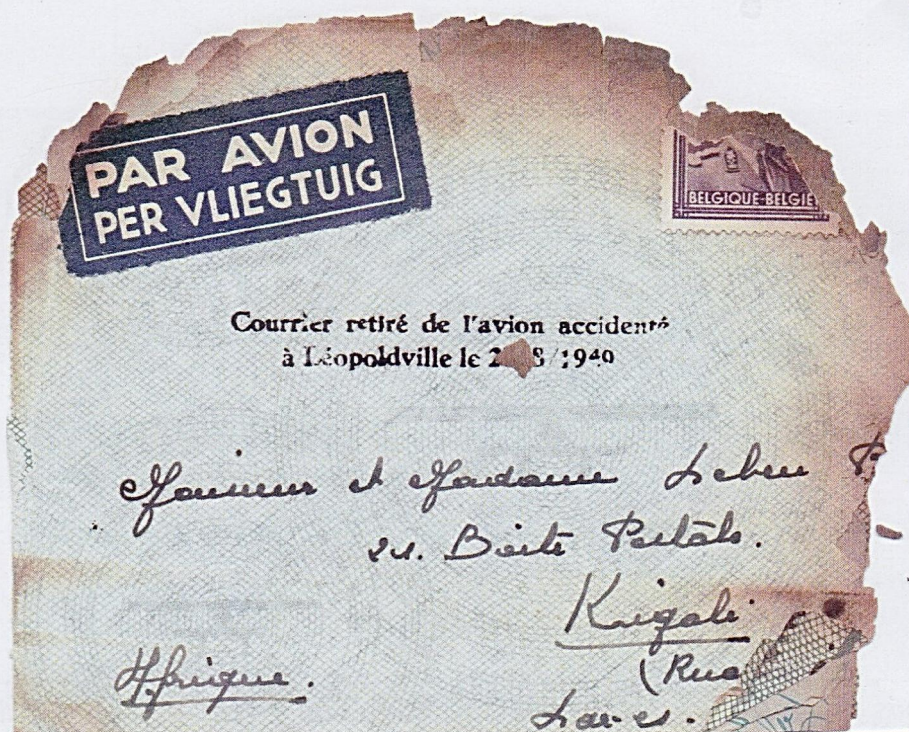 PAR AVION
PER VLIEGTUIG
BELGIQUE-BELGIE
Courrier retiré de l'avion accidenté
à Léopoldville le 2 8/1949
Monsieur et Madame
Boite Postale.
Kigali
(Rua
Afrique.